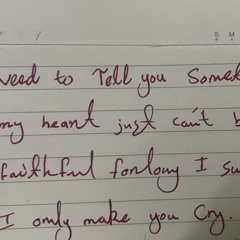 S M
need to Tell you Somet
my heart just can't b
faithful forlong I su
I only make you Cry.